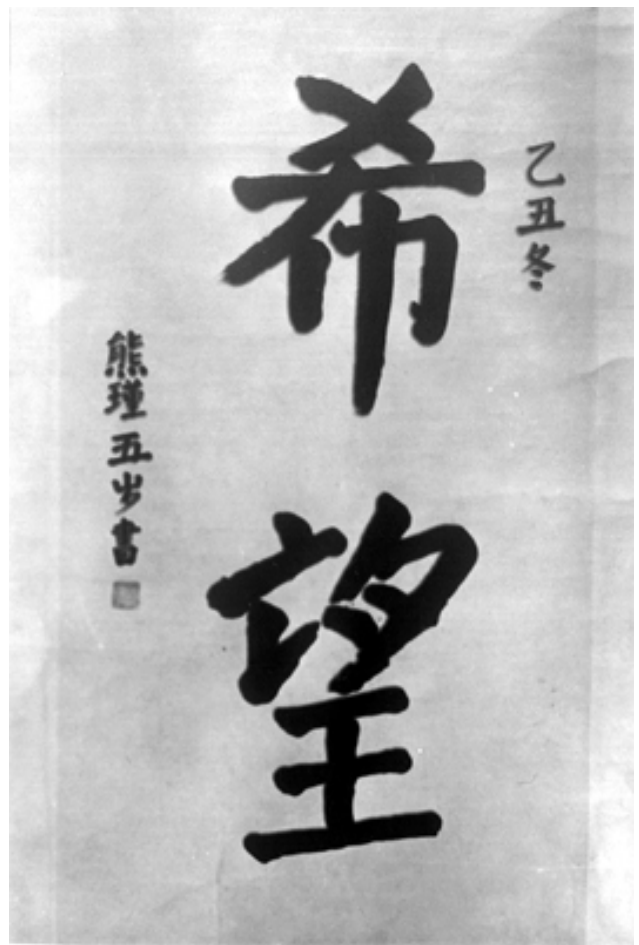 乙丑冬
希望
熊瑾五岁書